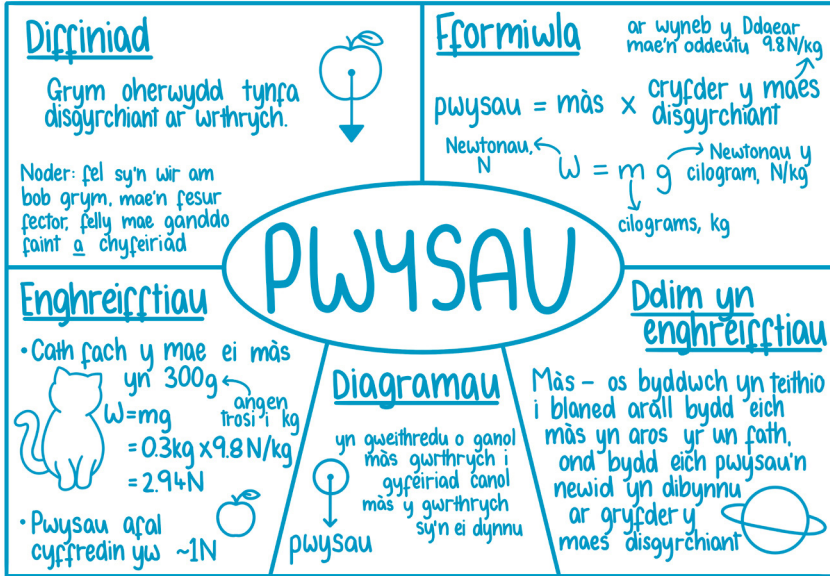 Diffiniad
Grym oherwydd tynfa
disgyrchiant ar wrthrych.
Noder: fel sy'n wir am
bob grym, mae'n fesur
fector, felly mae ganddo
faint a chyfeiriad
Fformiwla
ar wyneb y Ddaear
mae'n oddeutu 9.8N/kg
pwysau = màs x cryfder y maes
disgyrchiant
Newtonau,
N
W = m g
Newtonau y
cilogram, N/kg
cilograms, kg
PWYSAU
Enghreifftiau
•Cath fach y mae ei màs
yn 300g
angen
trosi i kg
W=mg
= 0.3kg x9.8N/kg
= 2.94N
•Pwysau afal
cyffredin yw ~1N
Diagramau
yn gweithredu o ganol
màs gwrthrych i
gyfeiriad canol
màs y gwrthrych
sy'n ei dynnu
pwysau
Ddim yn
enghreifftiau
Màs – os byddwch yn teithio
i blaned arall bydd eich
màs yn aros yr un fath,
ond bydd eich pwysau'n
newid yn dibynnu
ar gryfder y
maes disgyrchiant